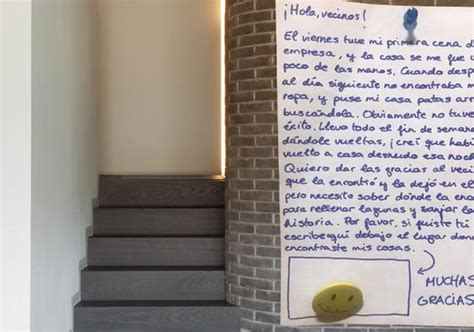 ¡Hola, vecinos!
El viernes tuve mi primera cena d
empresa, y la casa se me fue u
poco de las manos. Cuando desp
al día siguiente no encontraba m
ropa, y puse mi casa patas ar
buscándola. Obviamente no tuve
éxito. Llevo todo el fin de sema
dándole vueltas, ¡creí que habí
vuelto a casa desnudo esa noch
Quiero dar las gracias al veci
que la encontró y la dejó en el
pero necesito saber dónde la en
para rellenar lagunas y zanjar la
historia. Por favor, si fuiste tú
escribe aquí debajo el lugar don
encontraste mis cosas.
MUCHAS
GRACIAS